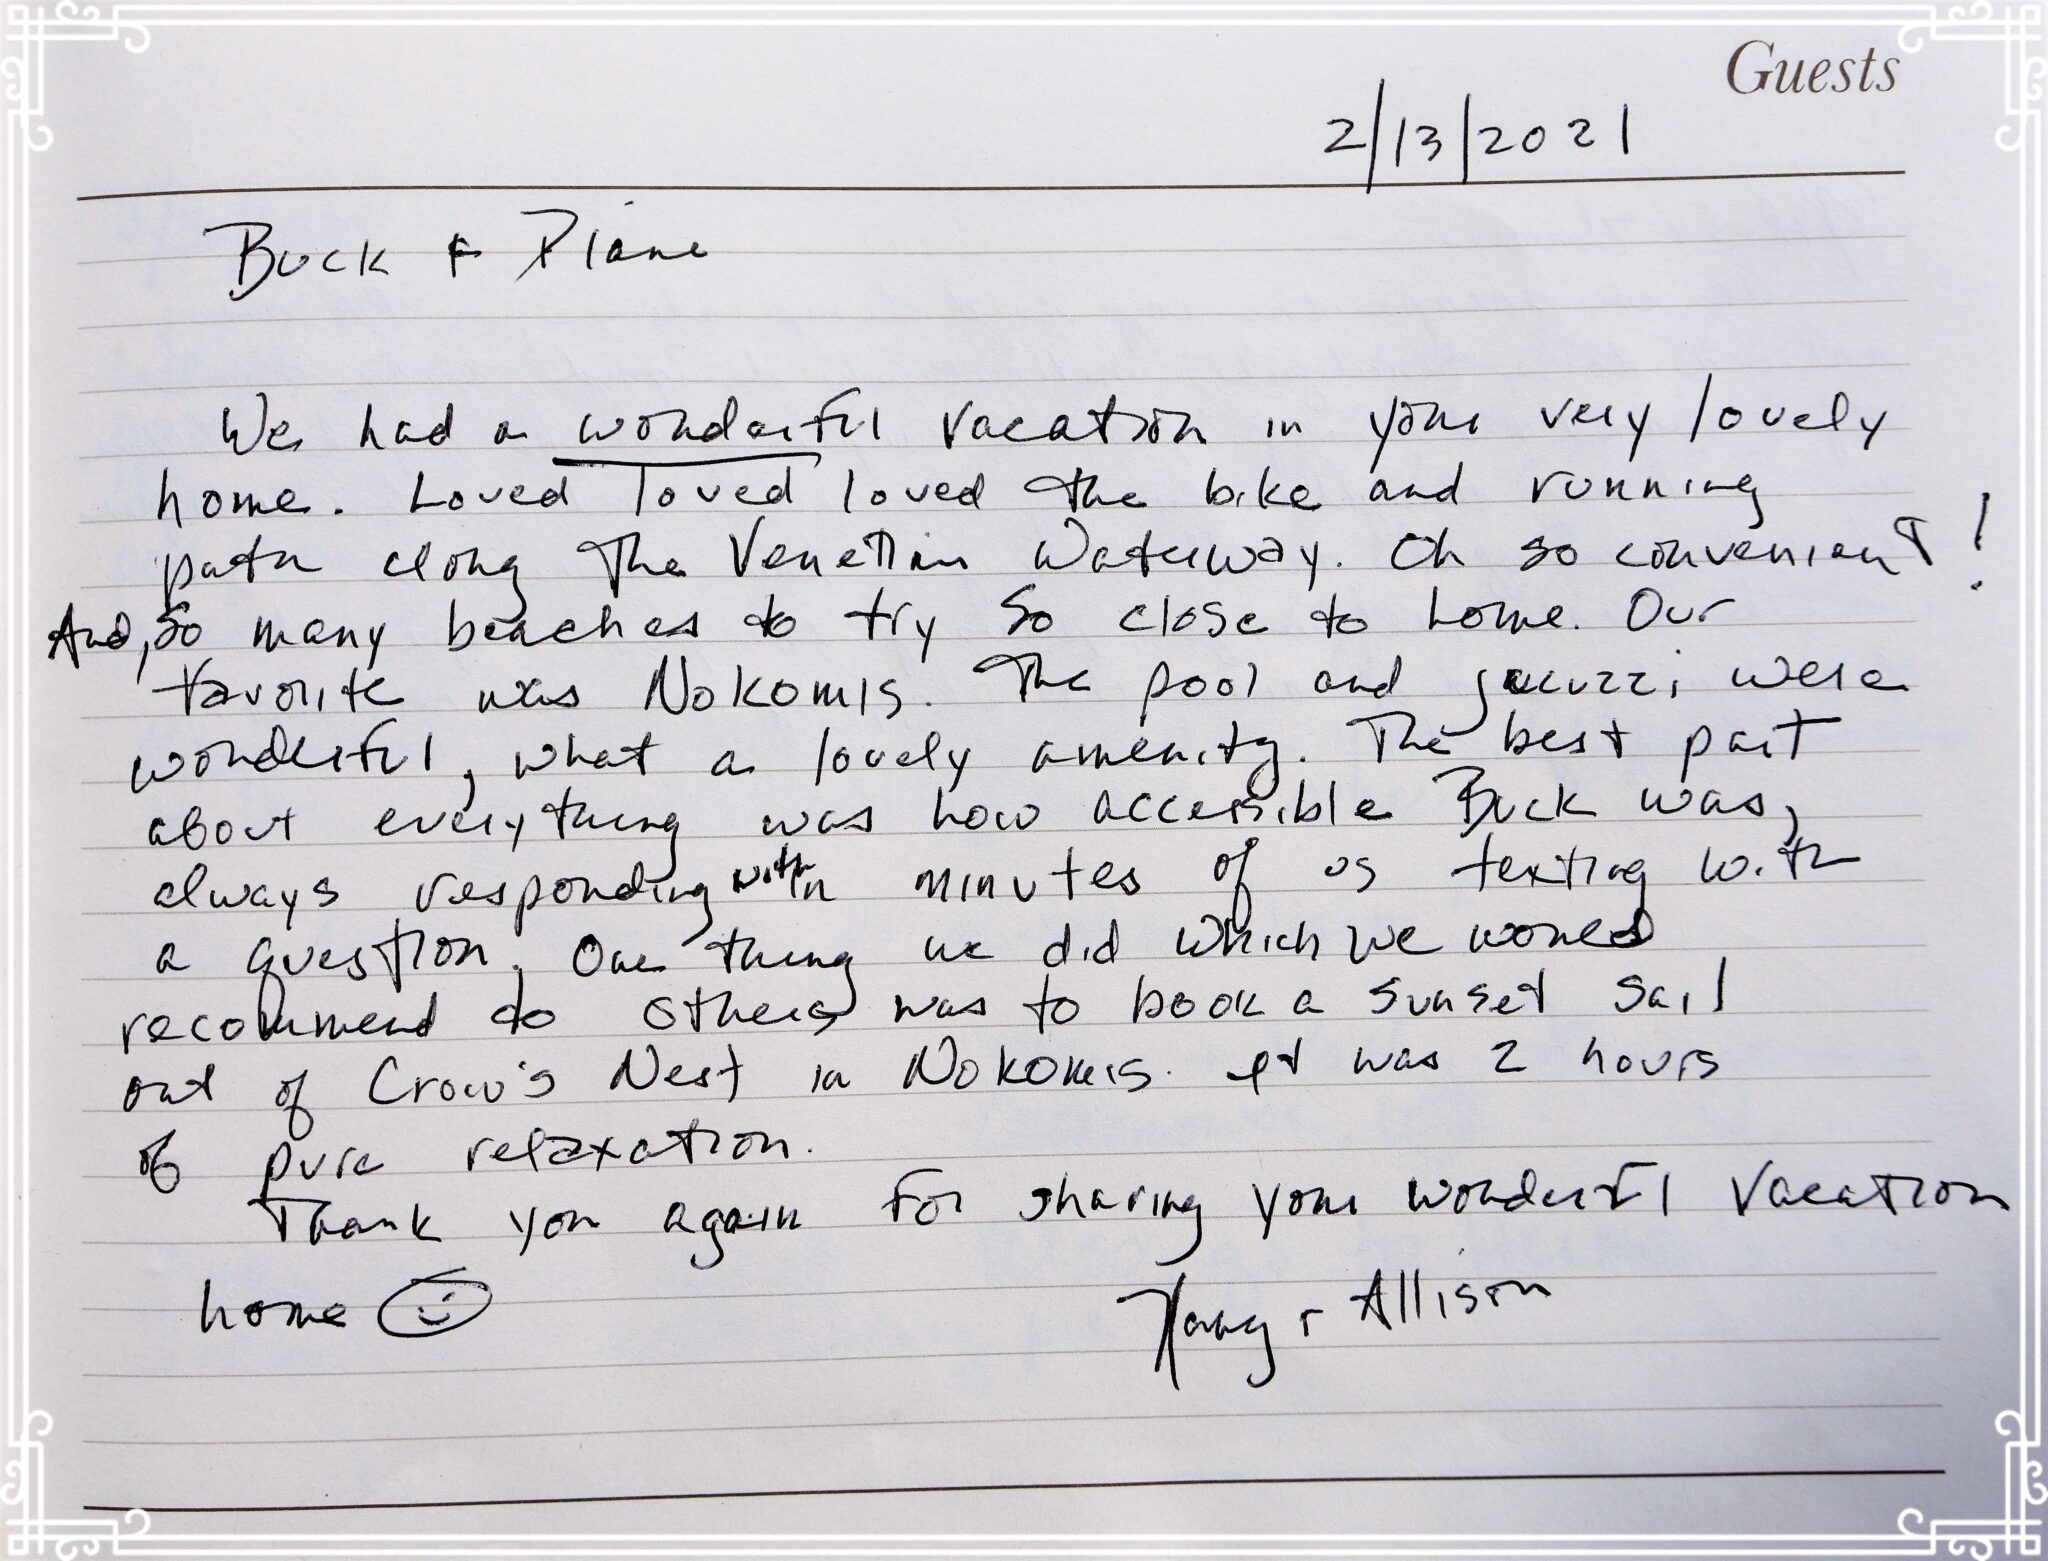 Guests
2/13/2021
Buck & Diane
We had a wonderful vacation in your very lovely
home. Loved loved loved the bike and running
path along the Venetian Waterway. Oh so convenient!
And, so many beaches to try so close to home. Our
favorite was Nokomis. The pool and jacuzzi were
wonderful, what a lovely amenity. The best part
about everything was how accessible Buck was,
always responding within minutes of us texting with
a question. One thing we did which we would
recommend to others was to book a sunset sail
out of Crow's Nest in Nokomis. It was 2 hours
of pure relaxation.
Thank you again for sharing your wonderful vacation
home
& Allison